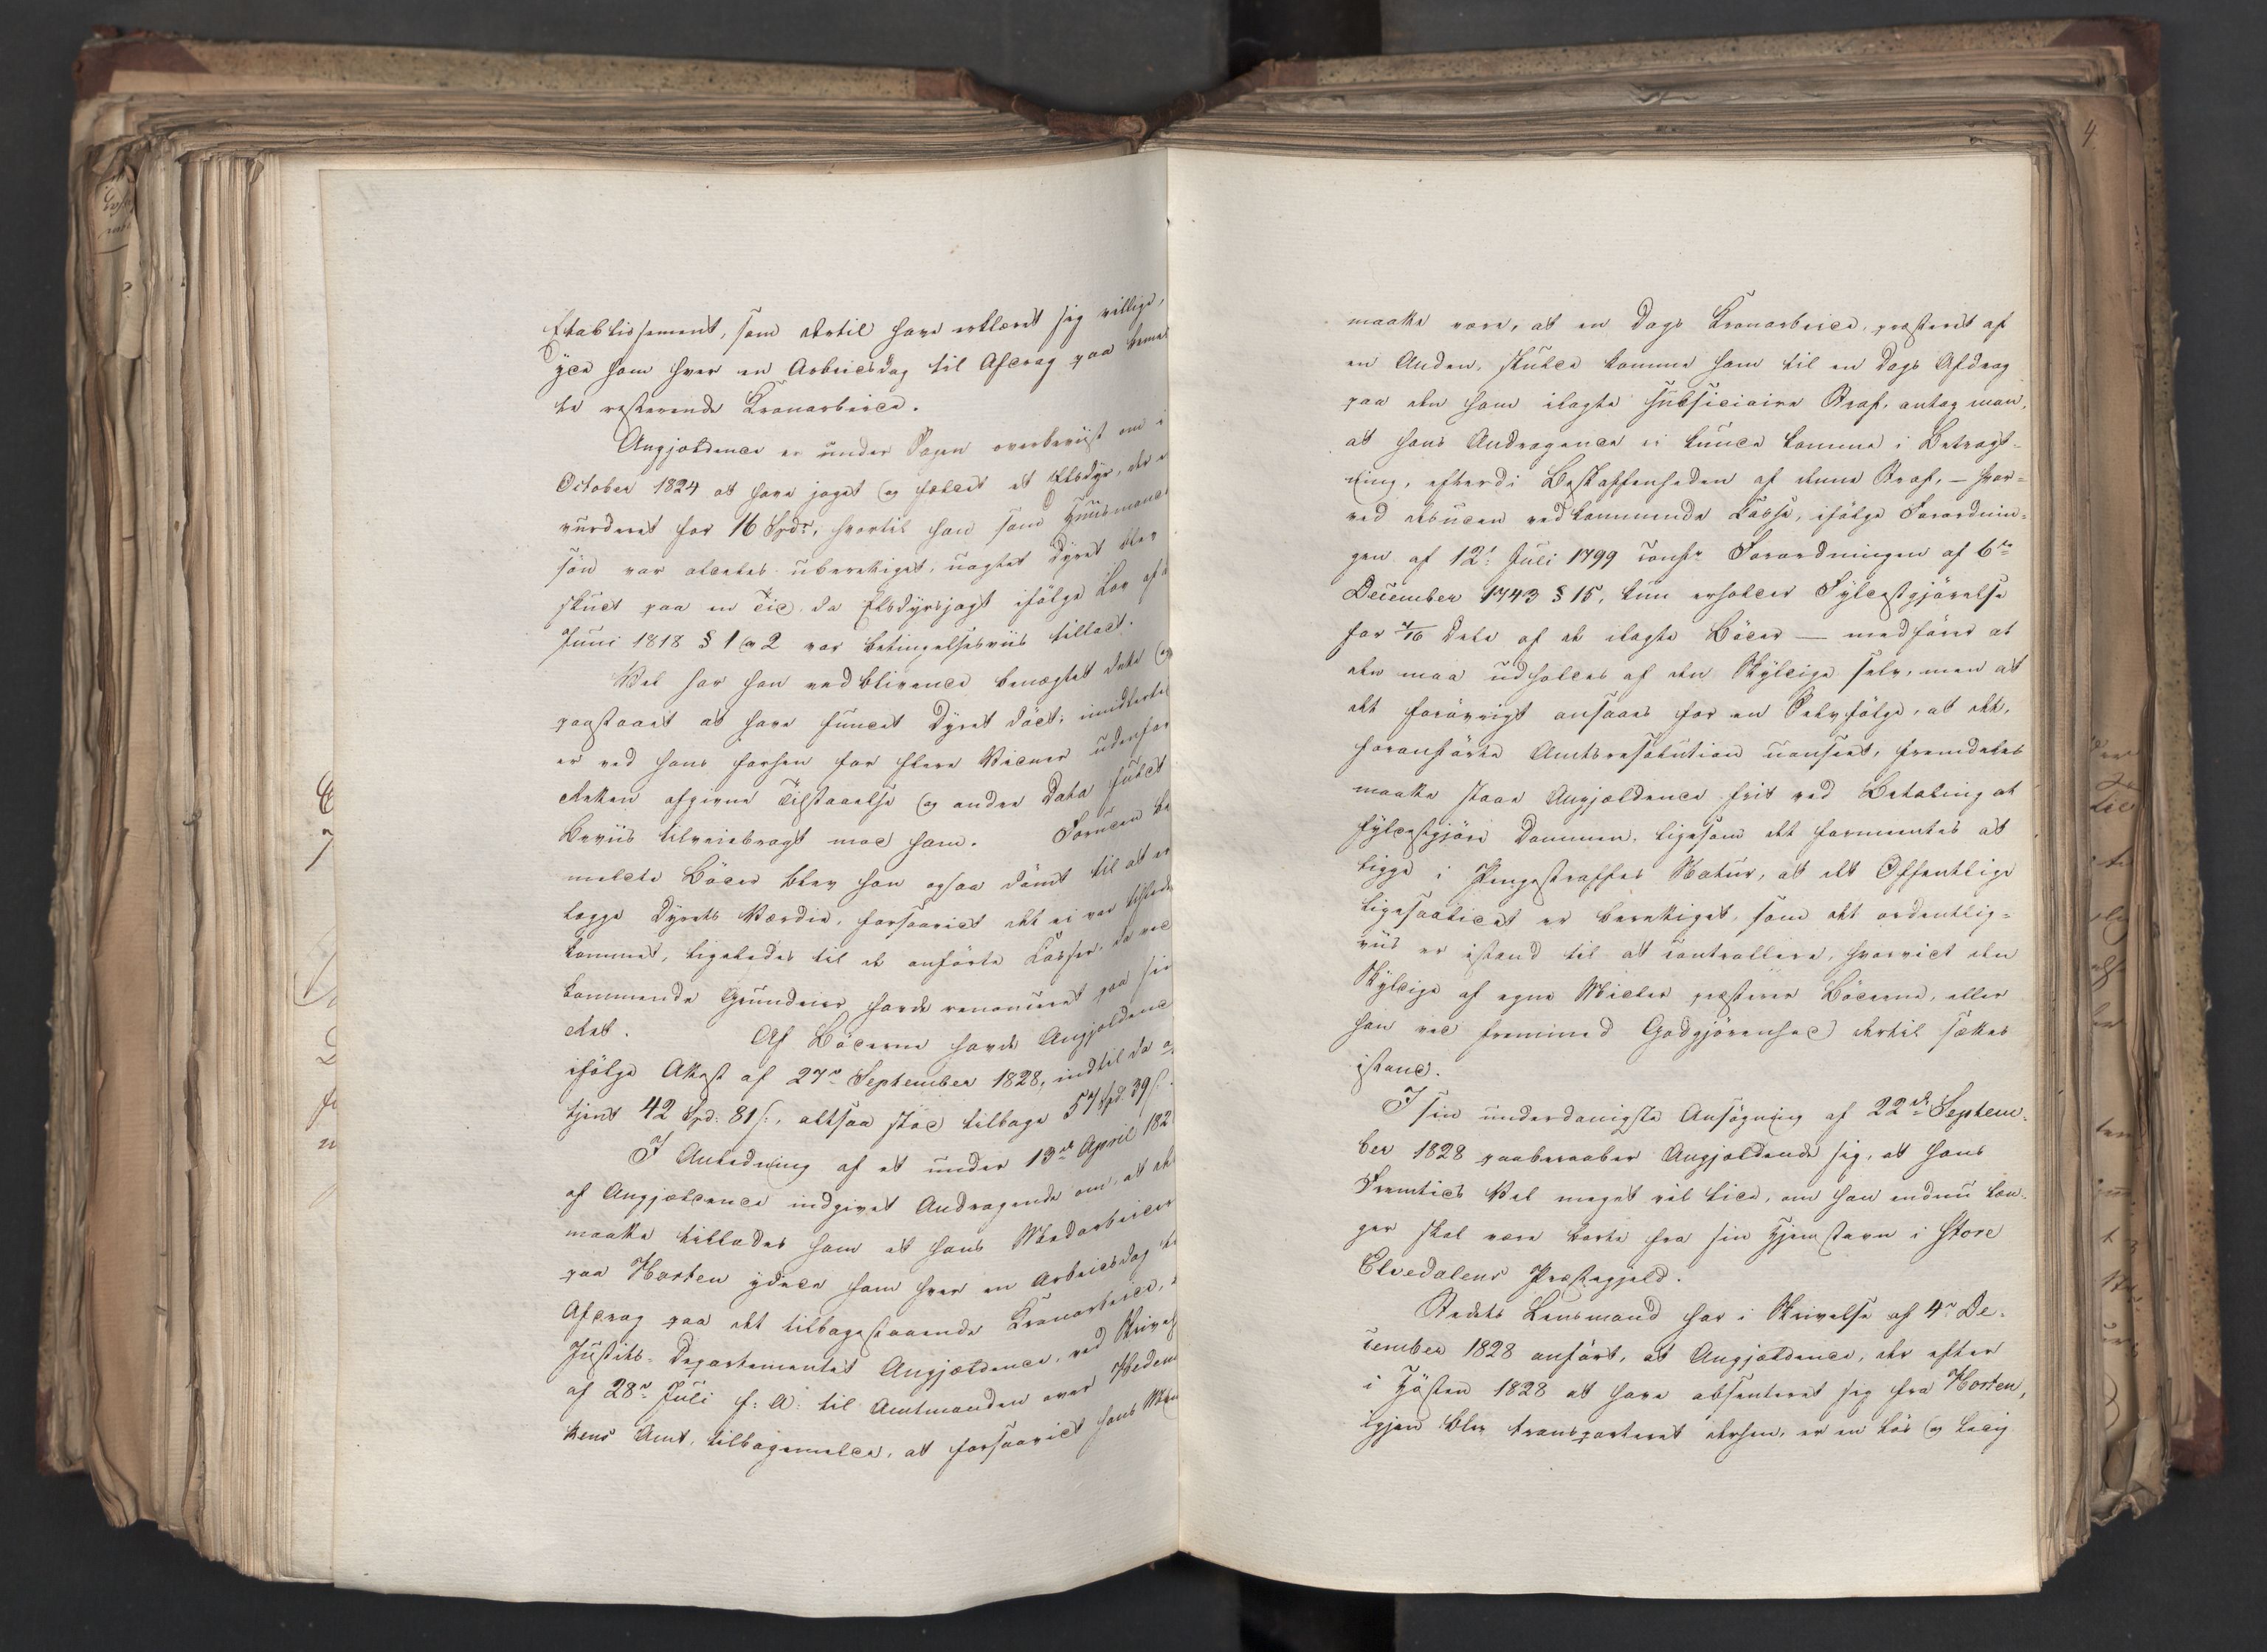 Etablissement, som dertil have erklæret sig villige,
yde ham hver en Arbeidsdag til Afdrag paa bemel
te resterende Kronarbeide.
Angjældende er under Sagen overbeviist om i
October 1824 at have jaget og fældet et Elsdyr, der e
vurderet for 16 Spdr, hvortil han som Huusmands
søn var aldeles uberettiget, uagtet Dyret blev
skudt paa en Tid da Elsdyrsjagt ifølge Lov af
Juni 1818 § 1 og 2 var betingelsesviis tilladt.
Vel har han vedblivende benægtet dette og
paastaaet at have fundet Dyret dödt; imidlertid
er ved hans forhen for flere Vidner udenfor
Retten afgivne Tilstaaelse og andre Data fuldt
Beviis tilveiebragt mod ham. Foruden be
meldte Böder blev han ogsaa dömt til at er
lægge Dyrets Værdie, forsaavidt det ei var tilstede
kommet, ligeledes til de anförte Casser, da ved
kommende Grundeier havde renonceret paa sin
Ret. Af Böderne havde Angjældende
ifölge Attest af 27de September 1828, indtil da af
tjent 42 Spd: 81 s:, altsaa stod tilbage 57 Spd. 39 s.
I Anledning af et under 13de April 182
af Angjældende indgivet Andragende om, at det
maatte tillades ham at hans Medarbeider
paa Horten ydede ham hver en Arbeidsdag til
Afdrag paa det tilbagestaaende Kronarbeide,
Justits-Departementet Angjældende, ved Skrivelse
af 28de Juli f: A: til Amtmanden over Hedem
kens Amt, tilbagemelde, at forsaavidt hans Men
maatte være, at en Dags Kronarbeide, præsteret af
en Anden, skulde komme ham til en Dags Afdrag
paa den ham ilagte subsidiaire Straf, antog man,
at hans Andragende ei kunde komme i Betragt-
ning, efterdi Beskaffenheden af denne Straf, – hvor-
ved desuden vedkommende Casse, ifölge Forordnin-
gen af 12te Juli 1799 confr Forordningen af 6te
December 1743 § 15, kun erholder Fyldestgjörelse
for 4/10 Dele af de ilagte Böder — medförer at
den maa udholdes af den Skyldige selv, men at
det forövrigt ansaaes for en Selvfölge, at det,
foranförte Amtsresolution uanseet, fremdeles
maatte staae Angjældende frit ved Betaling at
fyldestgjöre Dommen, ligesom det formeentes at
ligge i Pengestraffes Natur, at det Offentlige
ligesaalidet er berettiget, som det ordentlig-
viis er istand til at controllere, hvorvidt den
Skyldige af egne Midler præsterer Böderne, eller
han ved fremmed Godgjörenhed dertil sættes
istand.
I sin underdanigste Ansögning af 22de Septem-
ber 1828 paaberaaber Angjældende sig, at hans
Fremtids Vel meget vil lide, om han endnu læn-
ger skal være borte fra sin Hjemstavn i Store
Elvedalens Præstegjeld.
Stedets Lensmand har i Skrivelse af 4de De-
cember 1828 anfört, at Angjældende, der efter
i Hösten 1828 at have absenteret sig fra Horten,
igjen blev transporteret derhen, er en lös og ledig